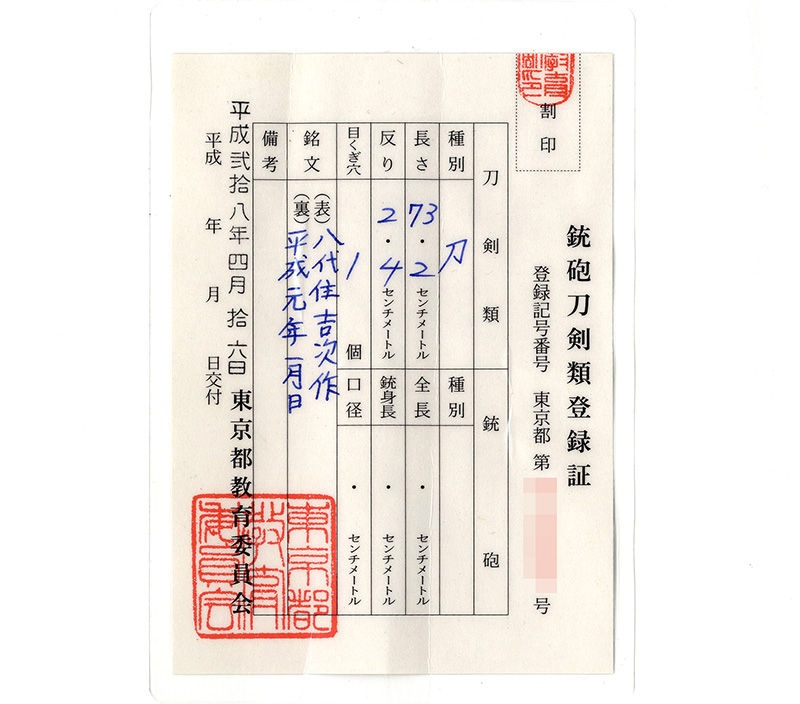 割印
銃砲刀剣類登録証
登録記号番号 東京都 第 号
刀剣類 銃砲
種別 刀 種別
長さ 73・2センチメートル 全長 ・ センチメートル
反り 2・4センチメートル 銃身長 ・ センチメートル
目くぎ穴 1個 口径 ・ センチメートル
銘文 (表) 八代住吉次作
(裏) 平成元年一月日
備考
平成弐拾八年四月拾六日 東京都教育委員会
平成 年 月 日交付
東京都
教育
委員会